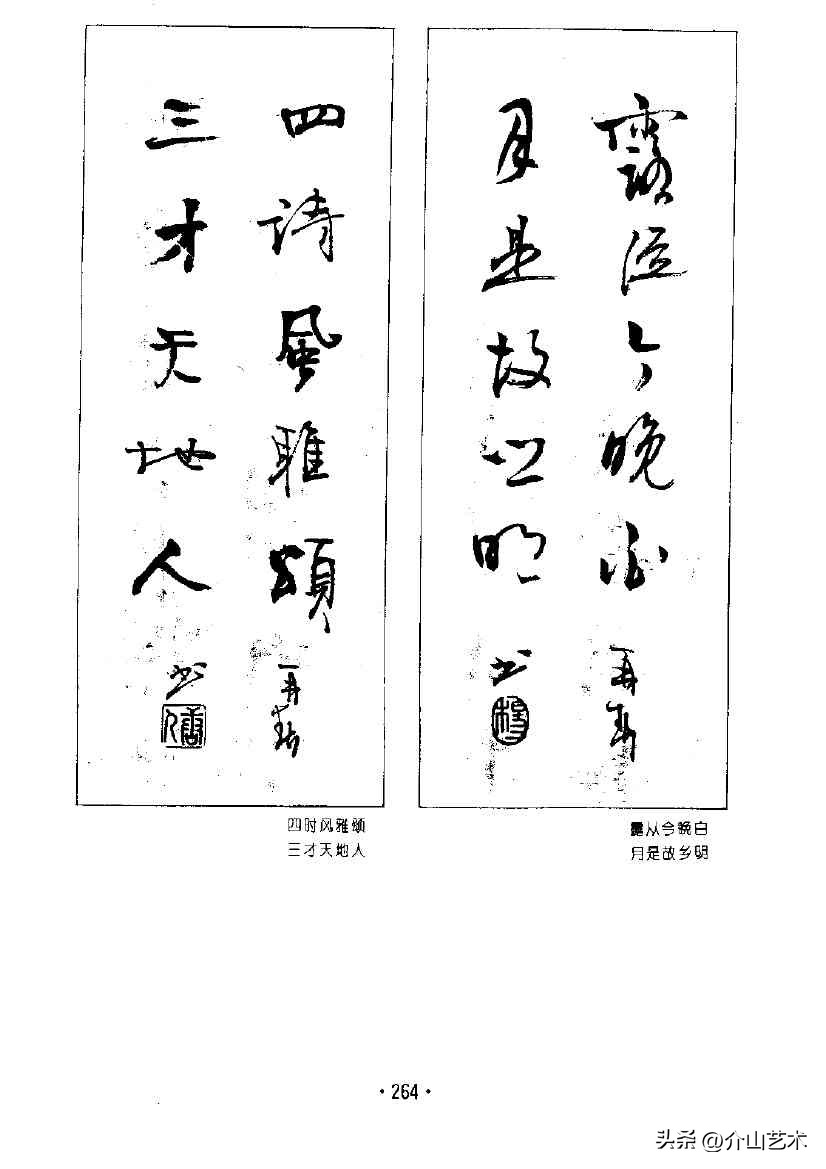 露從今晚白
月是故鄉明
書
四詩風雅頌
三才天地人
書
露从今晚白
月是故乡明
四时风雅颂
三才天地人
·264·
头条 @介山艺术